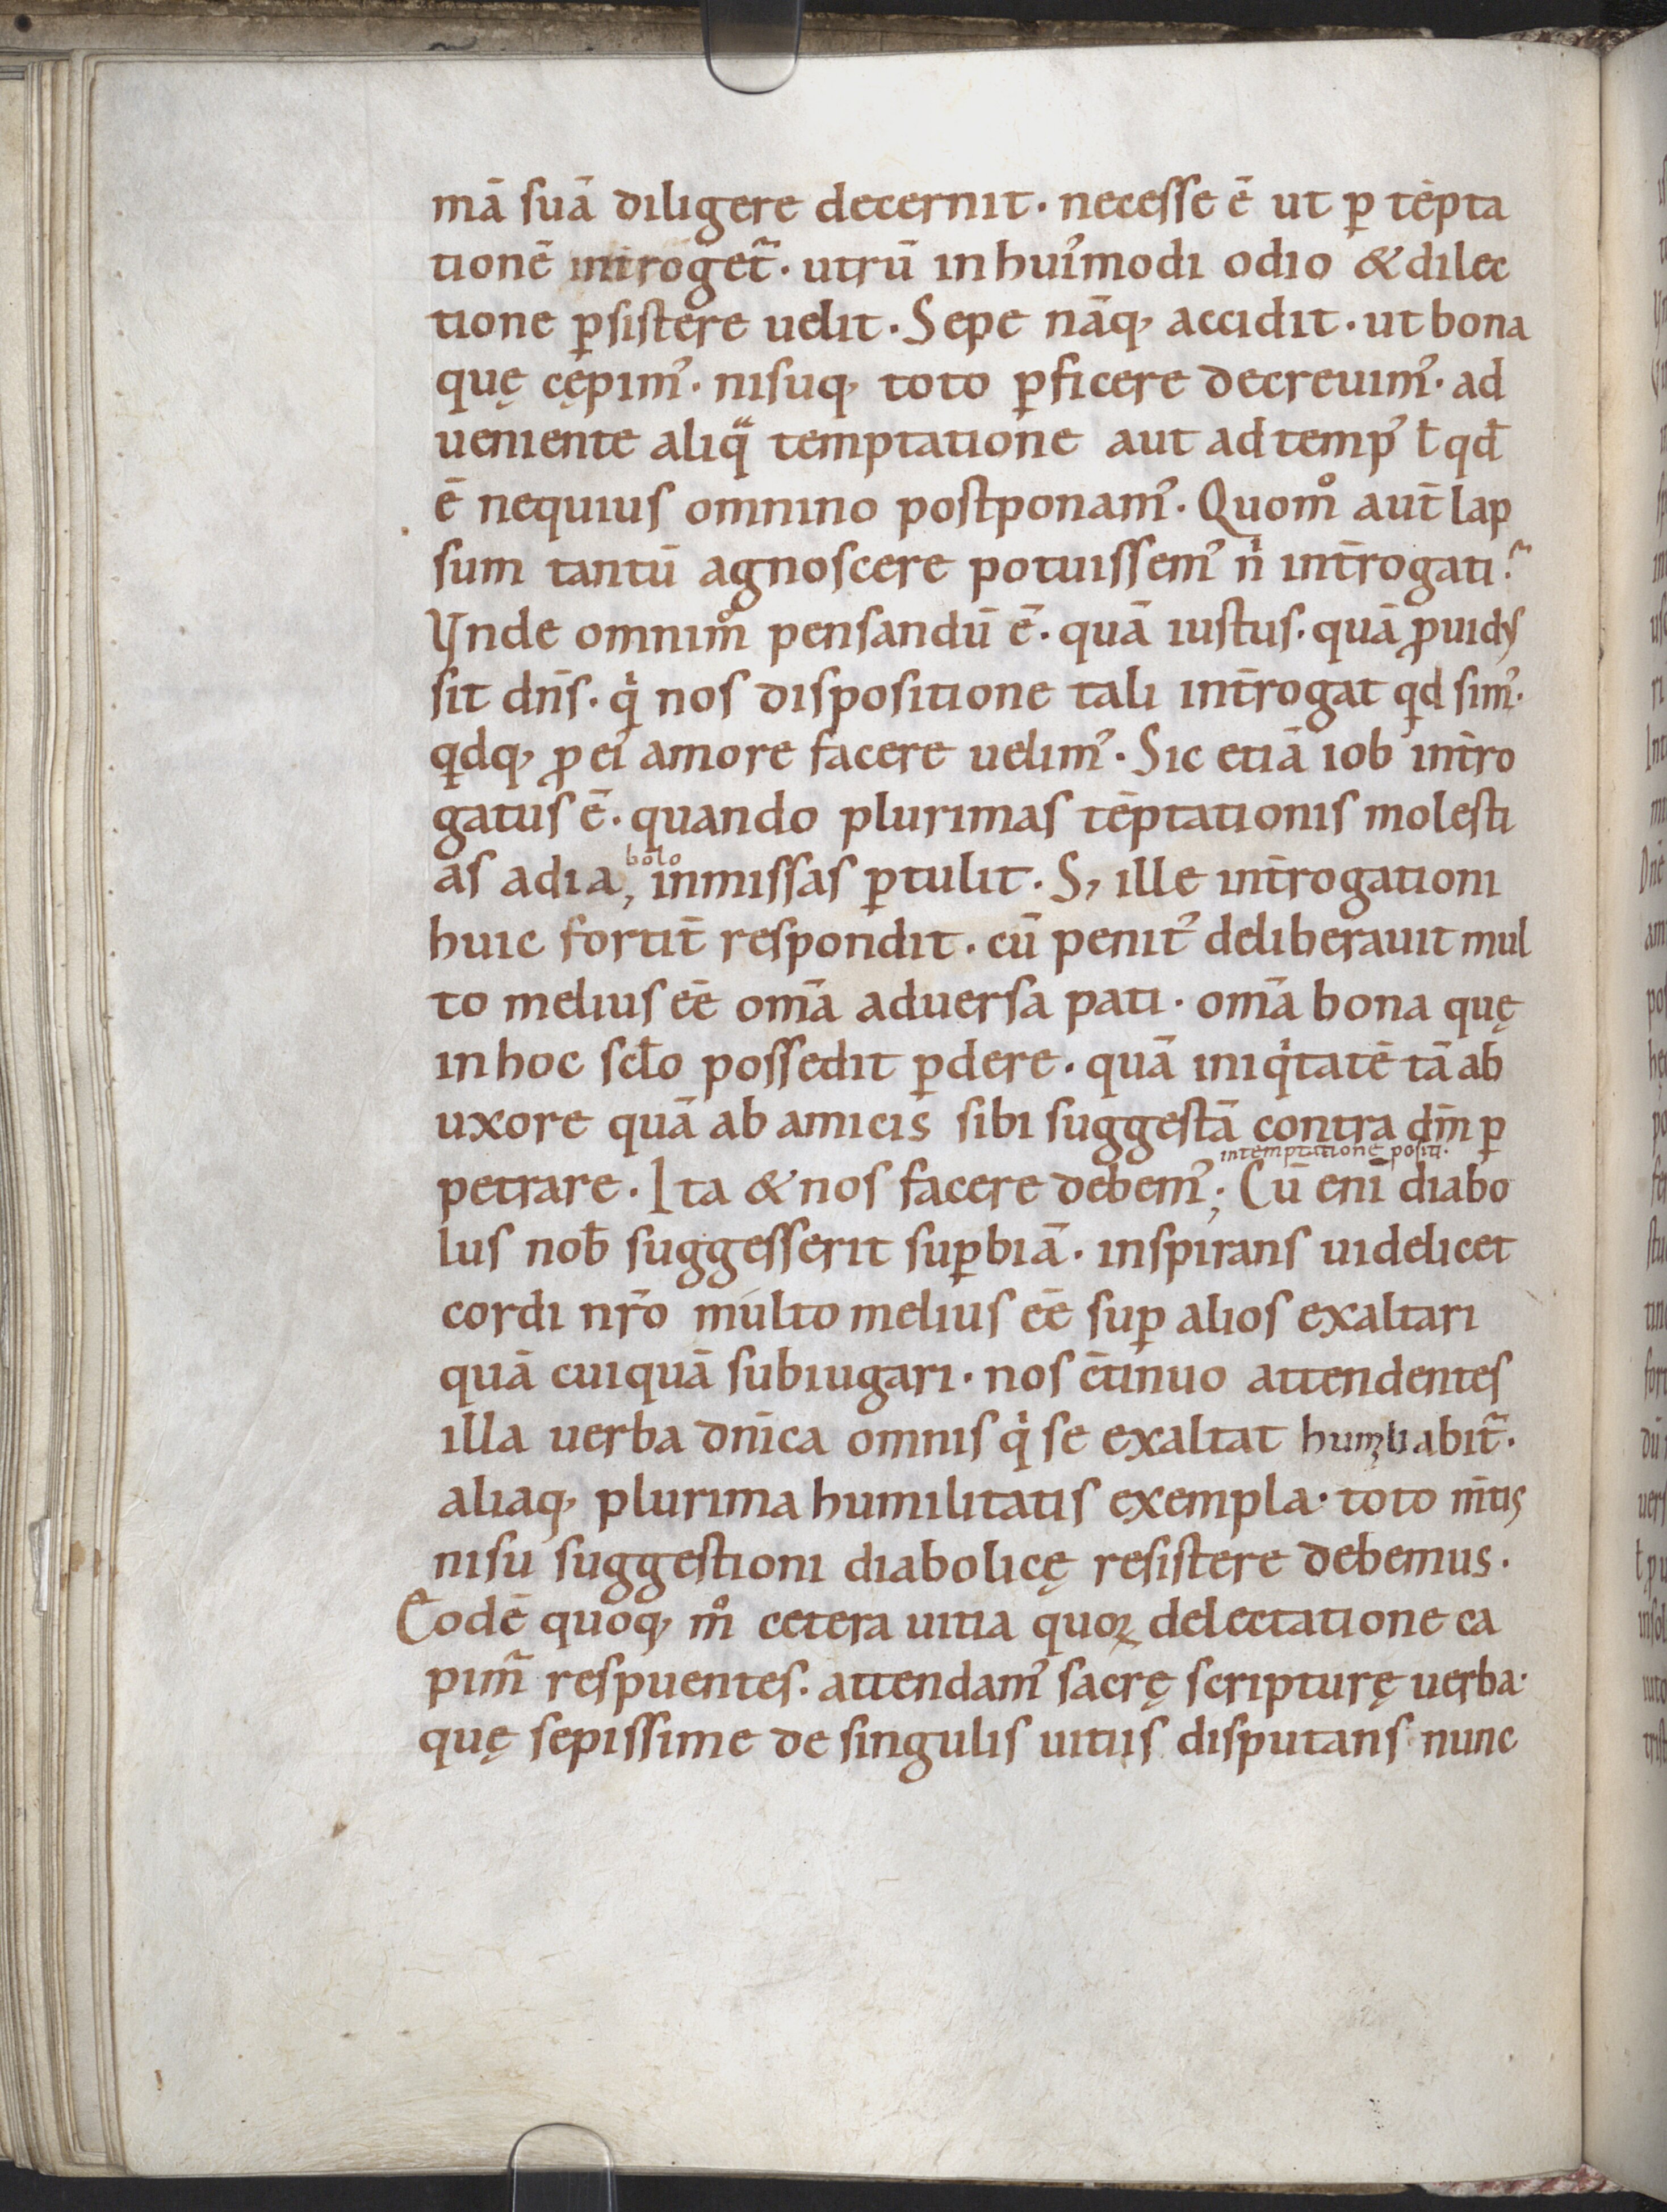 mā suā diligere decernit· necesse ē ut ꝑ tēpta
tionē int̄roget᷑· utrū in huiꝰmodi odio & dilec
tione ꝑsistere uelit· Sepe nāq, accidit· ut bona
quę cępimꝰ· nisuq, toto ꝑficere decreuimꝰ· ad
ueniente aliqͣ temptatione aut ad tempꝰ ł qđ
ē nequius omnino postponamꝰ· Quomͦ aut̄ lap
sum tantū agnoscere potuissemꝰ nͥ int̄rogati?
Vnde omnimͦ pensandū ē· quā iustus· quā ꝓuidꝰ
sit dn̄s· qͥ nos dispositione tali int̄rogat qd simꝰ·
qdq, ꝓ eiꝰ amore facere uelimꝰ· Sic etiā iob int̄ro
gatus ē· quando plurimas tēptationis molesti
as a dia, bolo inmissas ꝑtulit· S, ille int̄rogationi
huic fortit̄ respondit· cū penitꝰ deliberauit mul
to melius ēē om̄a aduersa pati· om̄a bona quę
in hoc scło possedit ꝑdere· quā iniqͥtatē tā ab
uxore quā ab amicis sibi suggestā contra dm̄ ꝑ
in temptatione positi·
petrare· Ita & nos facere debemꝰ; Cū eni̅ diabo
lus nob̄ suggesserit suꝑbiā· inspirans uidelicet
cordi nr̄o multo melius ēē suꝑ alios exaltari
quā cuiquā subiugari· nos c̄tinuo attendentes
illa uerba dn̄ica omnis qͥ se exaltat humiliabit᷑·
aliaq, plurima humilitatis exempla· toto m̄tis
nisu suggestioni diabolicę resistere debemus·
Eodē quoq, mͦ cetera uitia quoꝝ delectatione ca
pim᷑ respuentes· attendamꝰ sacrę scripturę uerba·
quę sepissime de singulis uitiis disputans nunc